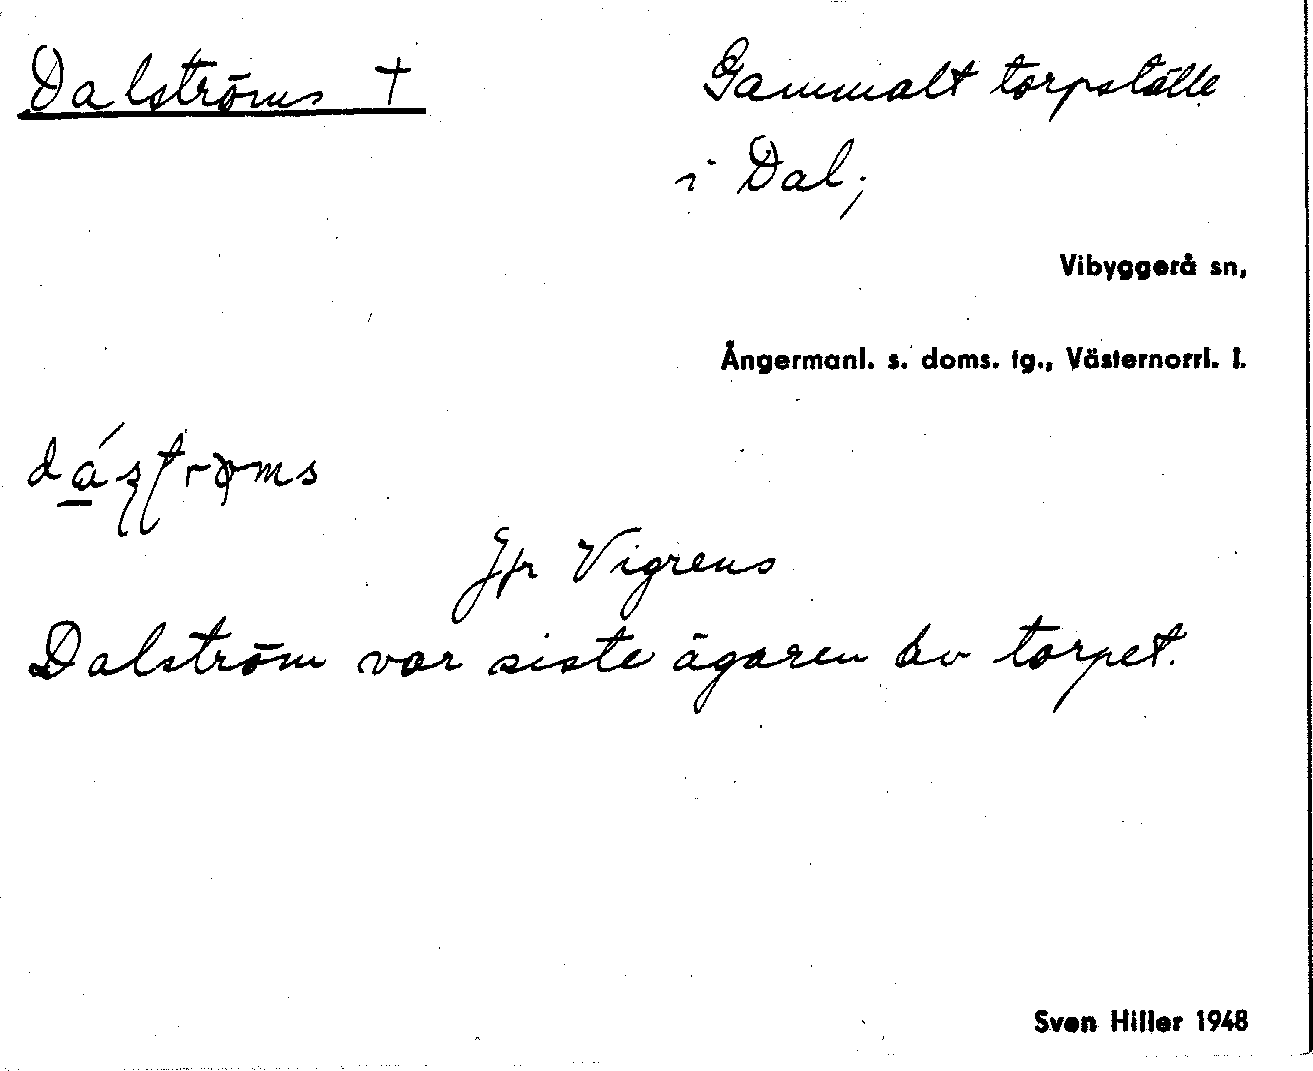 Dalströms †
Gammalt torpställe
i Dal;
Vibyggerå sn,
Ångermanl. s. doms. tg., Västernorrl. l.
Jfr Vigrens
Dalström var siste ägaren av torpet.
Sven Hiller 1948